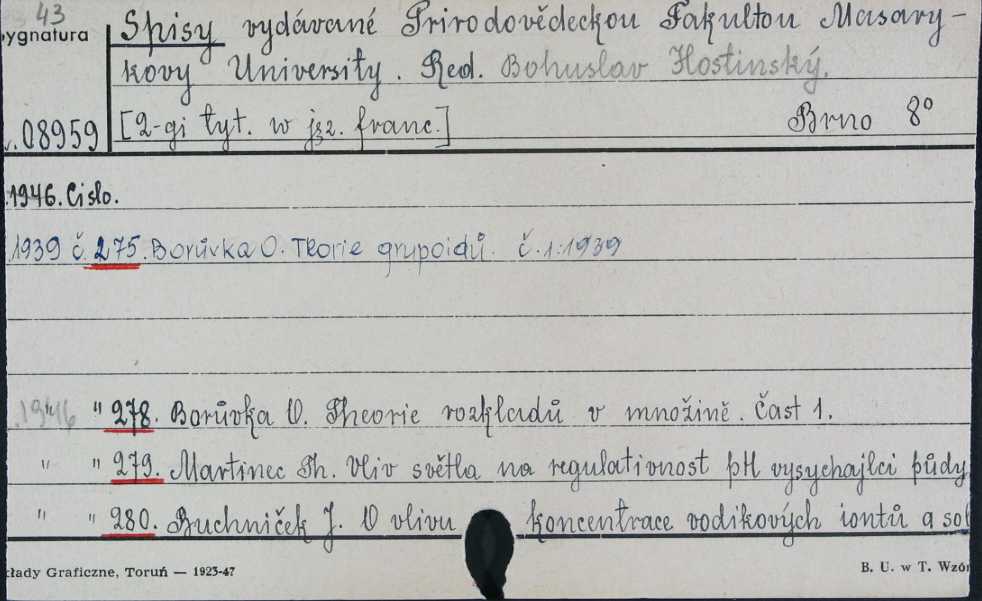 43
Spisy vydávané Přirodovědeckou Fakultou Masary-
ygnatura
kovy University. Red. Bohuslav Hostinský.
08959 [2-gi tyt. w jęz. franc.] Brno 8°
1946. Cislo.
1939 č. 275. Borůvka O. Teorie grupoidů. č.1:1939
1946 " 278. Borůvka O. Theorie rozkladů v množině. Část 1.
" " 279. Martinec Th. Vliv světla na regulativnost pH vysychajlci půdy
" " 280. Buchniček J. O vlivu koncentrace vodikových iontů a sol
łady Graficzne, Toruń — 1923-47 B. U. w T. Wzór